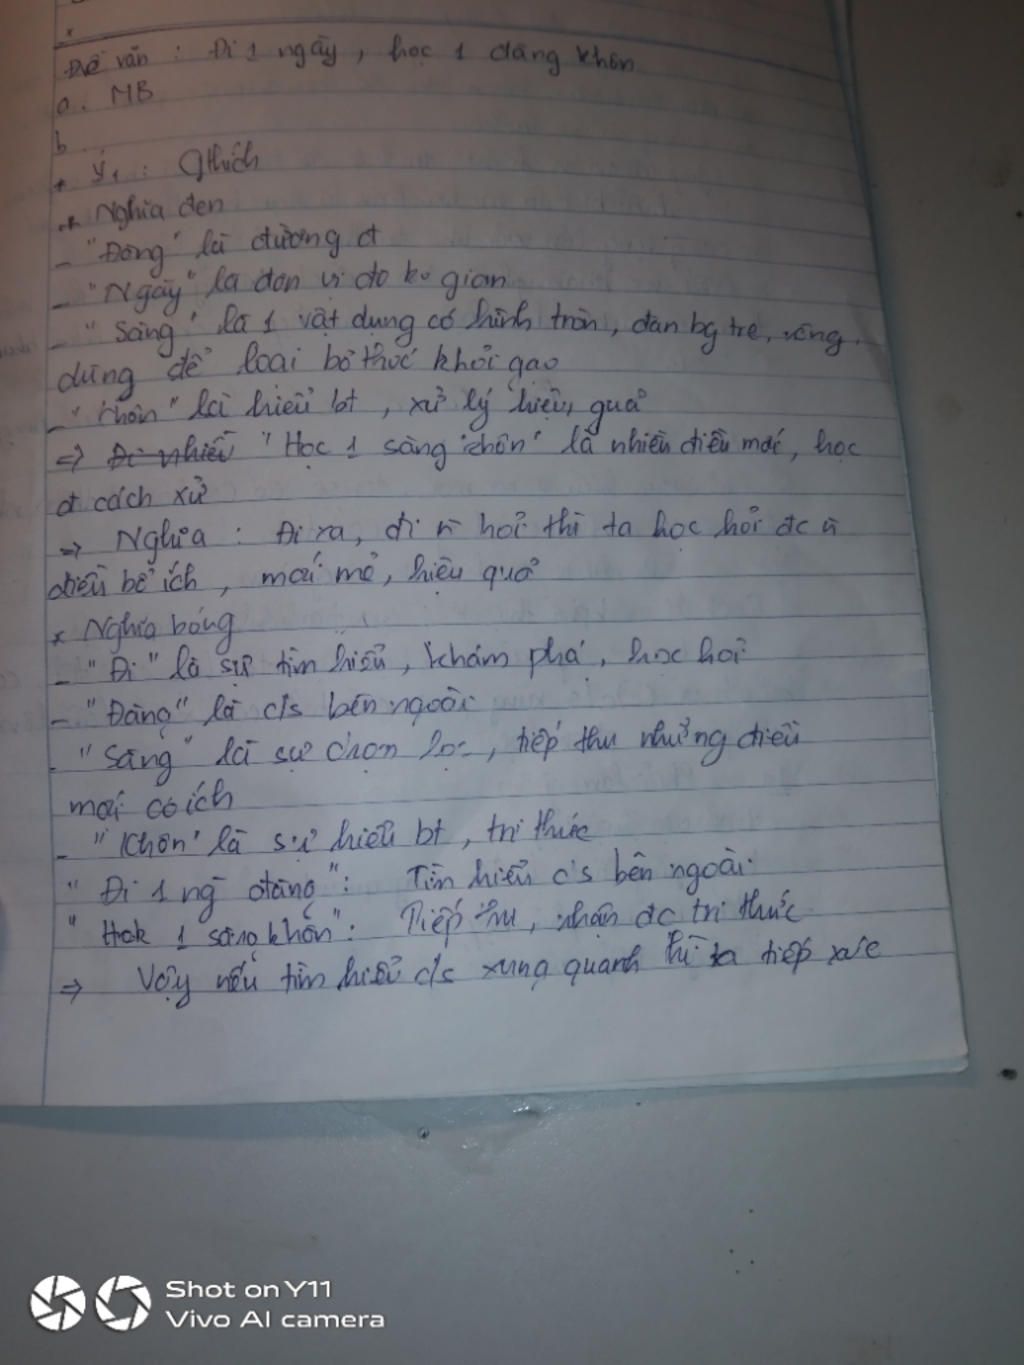 x
Đề văn : Đi 1 ngày, học 1 dàng khôn
a. MB
b.
+ Ý1 : Gthích
+ Nghĩa đen
- "Đàng" là đường đ
- "Ngày" là đơn vị đo ko gian
- "Sàng" là 1 vật dụng có hình tròn, đan bg tre,
dùng để loại bỏ thóc khỏi gạo
- "khôn" là hiểu bt, xử lý hiệu quả
=> Đi nhiều "Học 1 sàng khôn" là nhiều điều mới, học
đ cách xử
=> Nghĩa : Đi ra, đi n hỏi thì ta học hỏi đc n
điều bổ ích, mới mẻ, hiệu quả
x Nghĩa bóng
- "Đi" là sự tìm hiểu, khám phá, học hỏi
- "Đàng" là c/s bên ngoài
- "Sàng" là sự chọn lọc, tiếp thu những điều
mới có ích
- "Khôn" là sự hiểu bt, tri thức
"Đi 1 ng đàng": Tìm hiểu c/s bên ngoài
"Hok 1 sàng khôn": Tiếp thu, nhận đc tri thức
=> Vậy nếu tìm hiểu c/s xung quanh thì ta tiếp xúc
Shot on Y11
Vivo AI camera